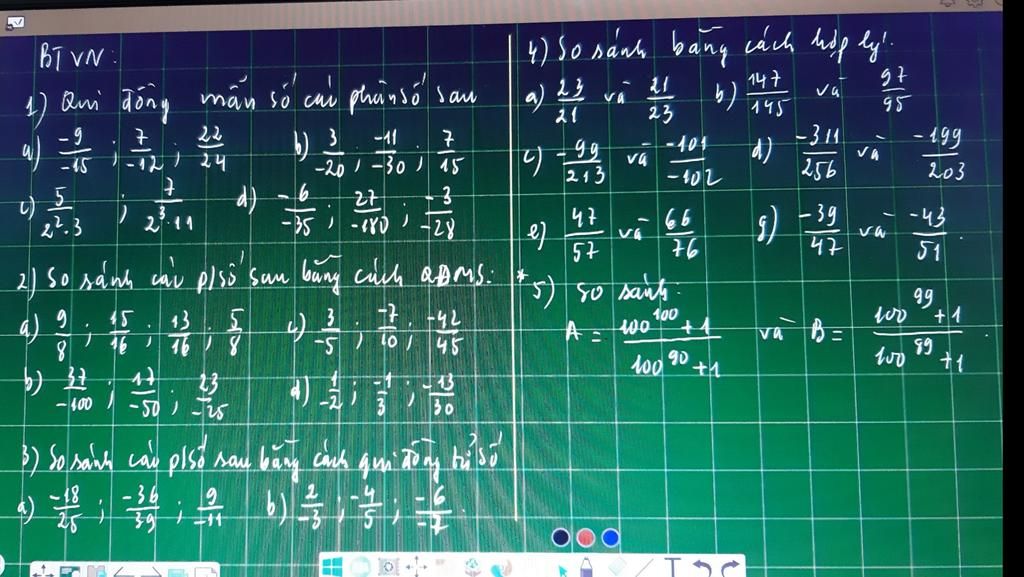 BTVN:
1) Qui đồng mẫn số các phân số sau
a) -9/-15 ; 7/-12 ; 22/24 b) 3/-20 ; -11/-30 ; 7/15
c) 5/2².3 ; 7/2³.11 d) -6/-35 ; 27/-180 ; -3/-28
2) So sánh các p/số sau bằng cách QĐMS:
a) 9/8 ; 15/16 ; 13/16 ; 5/8 c) 3/-5 ; -7/10 ; -42/45
b) 37/-100 ; 17/-50 ; 23/-25 d) 1/-2 ; -1/3 ; -13/30
3) So sánh các p/số sau bằng cách qui đồng tử số
a) -18/25 ; -36/39 ; 9/-11 b) 2/-3 ; -4/5 ; -6/-7
4) So sánh bằng cách hợp lý:
a) 23/21 và 21/23 b) 147/145 và 97/95
c) -99/213 và -101/-102 d) -311/256 và -199/203
e) 47/57 và 66/76 g) -39/47 và -43/51.
* 5) So sánh:
A = 100¹⁰⁰+1/100⁹⁰+1 và B = 100⁹⁹+1/100⁸⁹+1.